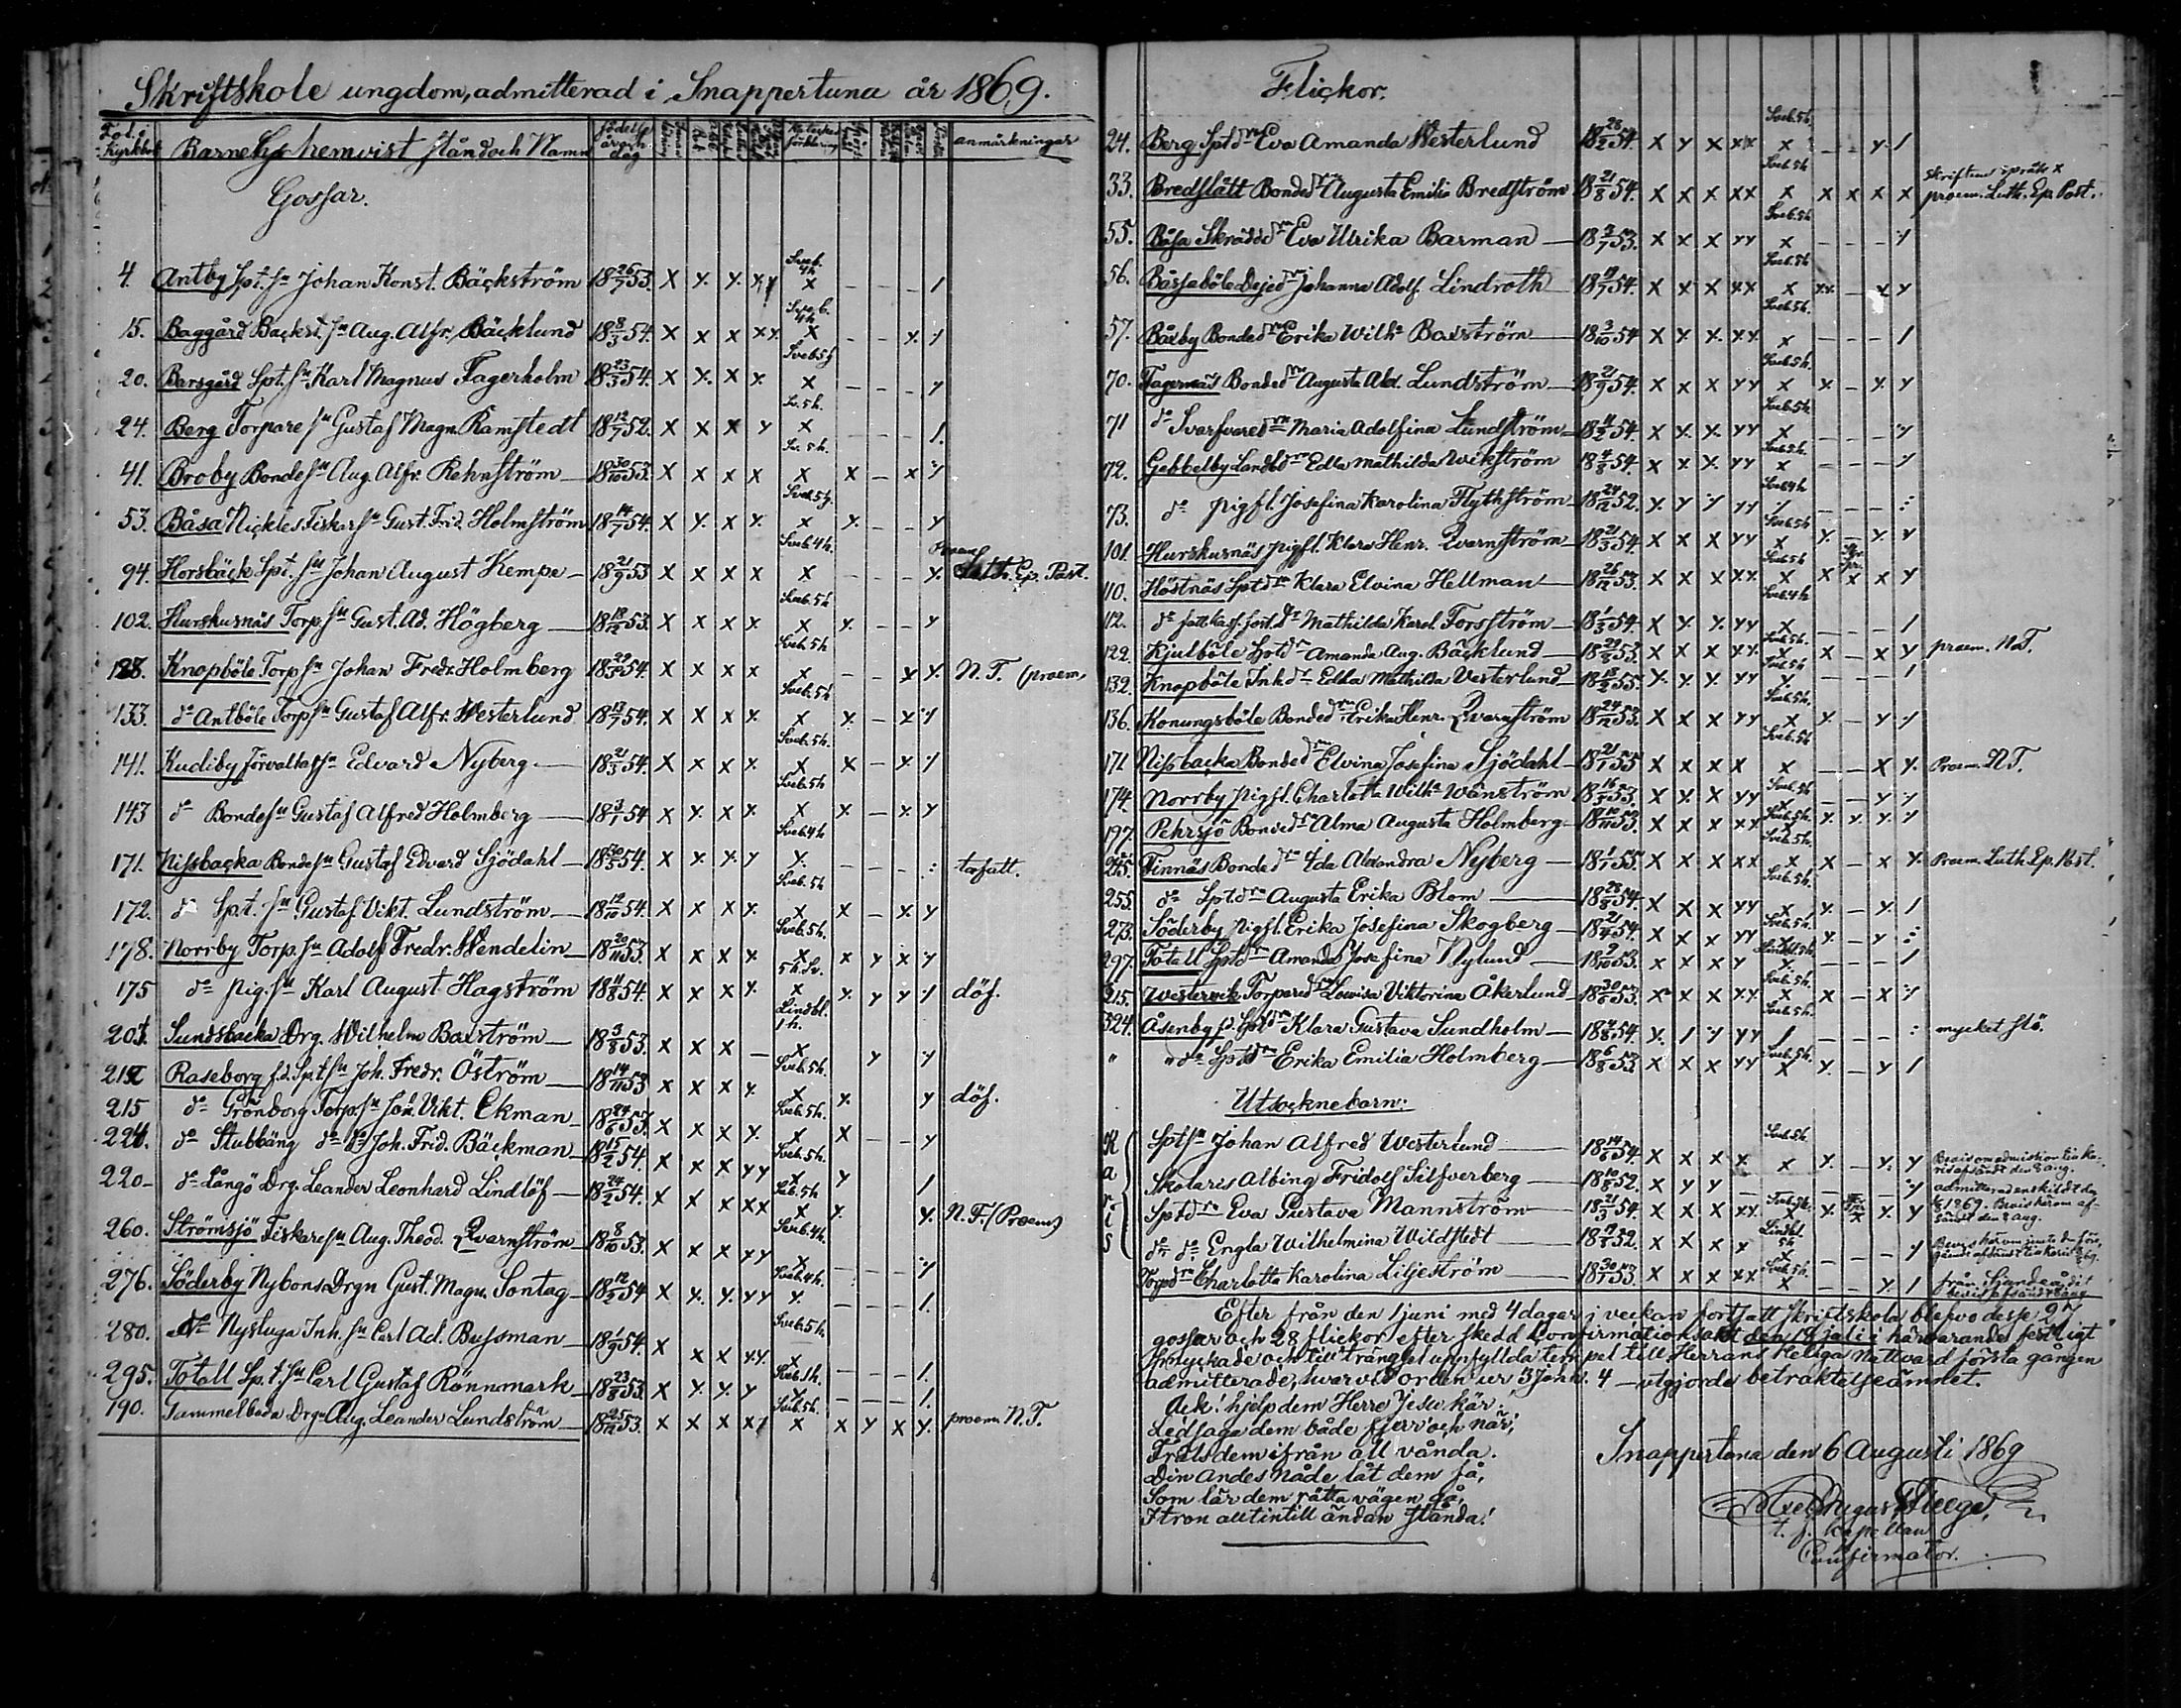 Skriftskole ungdom, admitterad i Snappertuna år 1869.
Fol. i Kyrkbok Barnets hemvist stånd och Namn födelse år och dag anmärkningar
Gossar.
4. Antby Spt. sn Johan Konst. Bäckström 18 26/7 53. x x x xx Sveb. 4h x - - - /
15. Baggård Backst. sn Aug. Alfr. Bäcklund 18 8/3 54. x x x xx Sveb. 4h x - - x /
20. Barsgård Spt. sn Karl Magnus Fagerholm 18 23/3 54. x x x x Sveb 5h x - - - /
24. Berg Torpare sn Gustaf Magn. Ramstedt 18 12/7 52. x x x x Sv. 5h. x - - - /
41. Broby Bonde sn Aug. Alfr. Rehnström 18 30/10 53. x x x x Sv. 5h. x x - x /
53. Båsa Nickles Fiskar sn Gust. Frid. Holmström 18 14/7 54. x x x x Sveb. 5h. x x - - x
94. Horsbäck Spt. sn Johan August Kempe 18 21/9 53 x x x x Sveb. 4h. x - - - x Proem. Luth. Ep. Past.
102. Hurskusnäs Torp. sn Gust. Ad. Högberg 18 18/12 53. x x x x Sveb. 5h x x - - x
128. Knopböle Torp sn Johan Fredr. Holmberg 18 29/5 54. x x x x Sveb. 5h x - - x x N. T. (proem)
133. do Antböle Torp sn Gustaf Alfr. Westerlund 18 13/7 54. x x x x Sveb. 5h x x - x /
141. Kudiby Förvaltar sn Edvard Nyberg 18 21/3 54. x x x x Sveb. 5h. x x - x /
143 do Bonde sn Gustaf Alfred Holmberg 18 3/1 54 x x x x Sveb. 5h x x - x x
171. Nissbacka Bonde sn Gustaf Edvard Sjödahl 18 20/5 54. x x x x Sveb. 4h x - - - : torfatt.
172. do Spt. sn Gustaf Vikt. Lundström 18 12/10 54. x x x x Sveb. 5h x x - x x
178. Norrby Torp. sn Adolf Fredr. Wendelin 18 20/11 53. x x x x Sveb. 5h. x x x x x
175 do pig. sn Karl August Hagström 18 11/8 54. x x x x 5h. Sv. x x x x / döf.
201. Sundsbacka Drg. Wilhelm Boxström 18 3/8 53. x x x - Lindbl. 1h. x x x
212 Raseborg f.d. Spt. sn Joh. Fredr. Öström 18 14/11 53 x x x x Sveb. 5h. x x x döf.
215 do Grönborg Torp. sn Joh. Vikt. Ekman 18 24/6 53. x x x x Sveb. 5h. x x - - x
224. do Stubbäng do do Joh. Frid. Bäckman 18 15/2 54. x x x xx Sveb. 5h. x x /
220 do Långö Drg. Leander Leonhard Lindlöf 18 24/2 54. x x x xx Sveb. 5h x x x N. T. (Proem)
260. Strömsjö Fiskare sn Aug. Theod. Qvarnström 18 8/10 53. x x x xx Sveb. 4h. x - - - /
276. Söderby Nybons Drgn Gust. Magn. Sontag 18 12/2 54 x x x xx Sveb. 4h. x - - - /
280. do Nystuga Inh. sn Carl Ad. Bussman 18 1/9 54. x x x xx Sveb. 5h x - - - /
295. Totall Sp. t. sn Carl Gustaf Rönnmark 18 23/8 53. x x x x Sveb. 1h. x - - - /
190. Gammelboda Drgn Aug. Leander Lundström 18 25/12 53. x x x x/ Sveb. 5h. x x x x x proem N. T.
Flickor.
24. Berg Spt dr Eva Amanda Westerlund 18 28/2 54. x x x xx Sveb. 5h x - - x /
33. Bredslätt Bonde dr Augusta Emilia Bredström 18 21/8 54. x x x xx Sveb 5h x x x x x proem. Luth. Ep. Post.
55. Båsa Skrädd dr Eva Ulrika Barman 18 2/7 53. x x x xx Sveb. 5h x - - - /
56. Båssaböle Dejed dr Johanna Adolf. Lindroth 18 17/7 54. x x x xx Sveb. 5h x xx - x x
57. Båxby Bonde dr Erika Wilh. Boxström 18 3/10 54 x x x xx Sveb. 5h. x - - - /
70. Fagernäs Bonde dr Augusta Ald. Lundström 18 21/9 54. x x x xx Sveb. 5h. x x - x x
71 do Svarfvare dr Maria Adolfina Lundström 18 11/2 54. x x x xx Sveb. 5h. x - - - /
72. Gebbelby Landb dr Edla Mathilda Wikström 18 4/8 54. x x x xx Sveb. 5h. x - - - /
73. do pigfl. Josefina Karolina Flythström 18 24/12 52. x x / xx Sveb. 4h / - - - :
101. Hurskusnäs pigfl. Klara Henr. Qvarnström 18 21/3 54. x x x xx Sveb. 5h x x - x x
110. Höstnäs Spt dr Klara Elvina Hellman 18 26/12 53. x x x xx Sveb. 5h x x x x x
112. do Mathilda Karol. Forsström 18 1/3 54. x x x xx Sveb. 4h x - - - /
122. Kjulböle Spt dr Amanda Aug. Bäcklund 18 29/8 53. x x x xx Sveb. 5h. x x - x x proem. N. T.
132. Knopböle Inh dr Edla Mathilda Vesterlund 18 18/2 55. x x x xx Sveb. 5h x - - - /
136. Konungsböle Bonde dr Erika Henr. Qvarnström 18 24/12 53. x x x xx Sveb. 5h. x x - x /
171 Nissbacka Bonde dr Elvina Josefina Sjödahl 18 21/1 55 x x x x Sveb. 5h x - - x x Proem. N. T.
174. Norrby pigfl. Charlotta Wilh. Wänström 18 16/5 53. x x x xx Sveb. 5h x - - x /
197. Pehrsjö Bonde dr Alma Augusta Holmberg 18 10/11 53. x x x xx Sveb. 5h. x x x x /
245. Finnäs Bonde dr Ida Alexandra Nyberg 18 1/1 55. x x x xx Sveb. 5h. x x - x x Proem. Luth. Ep. Post.
255. do Spt. dr Augusta Erika Blom 18 28/8 54. x x x xx Sveb. 5h. x x - x /
273. Söderby pigfl. Erika Josefina Skogberg 18 21/4 54. x x x xx Sveb. 5h. x x - x :
297. Totall Spt dr Amanda Josefina Nylund 18 9/10 53. x x x x x - - - /
315. Westervik Torpare dr Lovisa Viktorina Åkerlund 18 30/6 53. x x x xx Sveb. 5h. x x - x /
324. Åsenby f.d. Spt dr Klara Gustava Sundholm 18 4/8 54. x / / xx Sveb. 5h. / - - - : mycket slö.
" " do Spt dr Erika Emilia Holmberg 18 6/8 53 x x x xx Sveb. 5h. x x - x /
Utsocknebarn:
Karis
Spt sn Johan Alfred Westerlund 18 14/6 54. x x x x Sveb. 5h. x x - x x Bevis om admission till Karis afsändt den 8 aug.
Skolaris Albin g Fridolf Silfverberg 18 10/8 52. x x x - - - - - /
Spt dr Eva Gustava Mannström 18 21/3 54. x x x xx Sveb. 5h. x x x x x
do do Engla Wilhelmina Wildstedt 18 19/8 52. x x x x Lindbl. 5h x - - - /
Torp dr Charlotta Karolina Liljeström 18 30/1 53. x x x xx Sveb. 5h. x - - x /
Efter från den 1 juni med 4 dagar i veckan fortsatt Skriftskola blefvo desse 27
gossar och 28 flickor efter skedd Confirmationsakt den 18 juli i härvarande festligt
smyckade och till trängsel uppfyllda tempel till Herrans Heliga Nattvard första gången
admitterade, hvarvid orden ur 3 Joh. v. 4 - utgjorde betraktelseämnet.
Ack! hjelp dem Herre Jesu kär.
Ledsaga dem både fjerr och när;
Fräls dem ifrån all vånda.
Din Andes nåde låt dem få,
Som lär dem rätta vägen gå,
I tron allt intill ändan stånda!
Snappertuna den 6 Augusti 1869
Axel August
t. f. Kapellan
Confirmator.